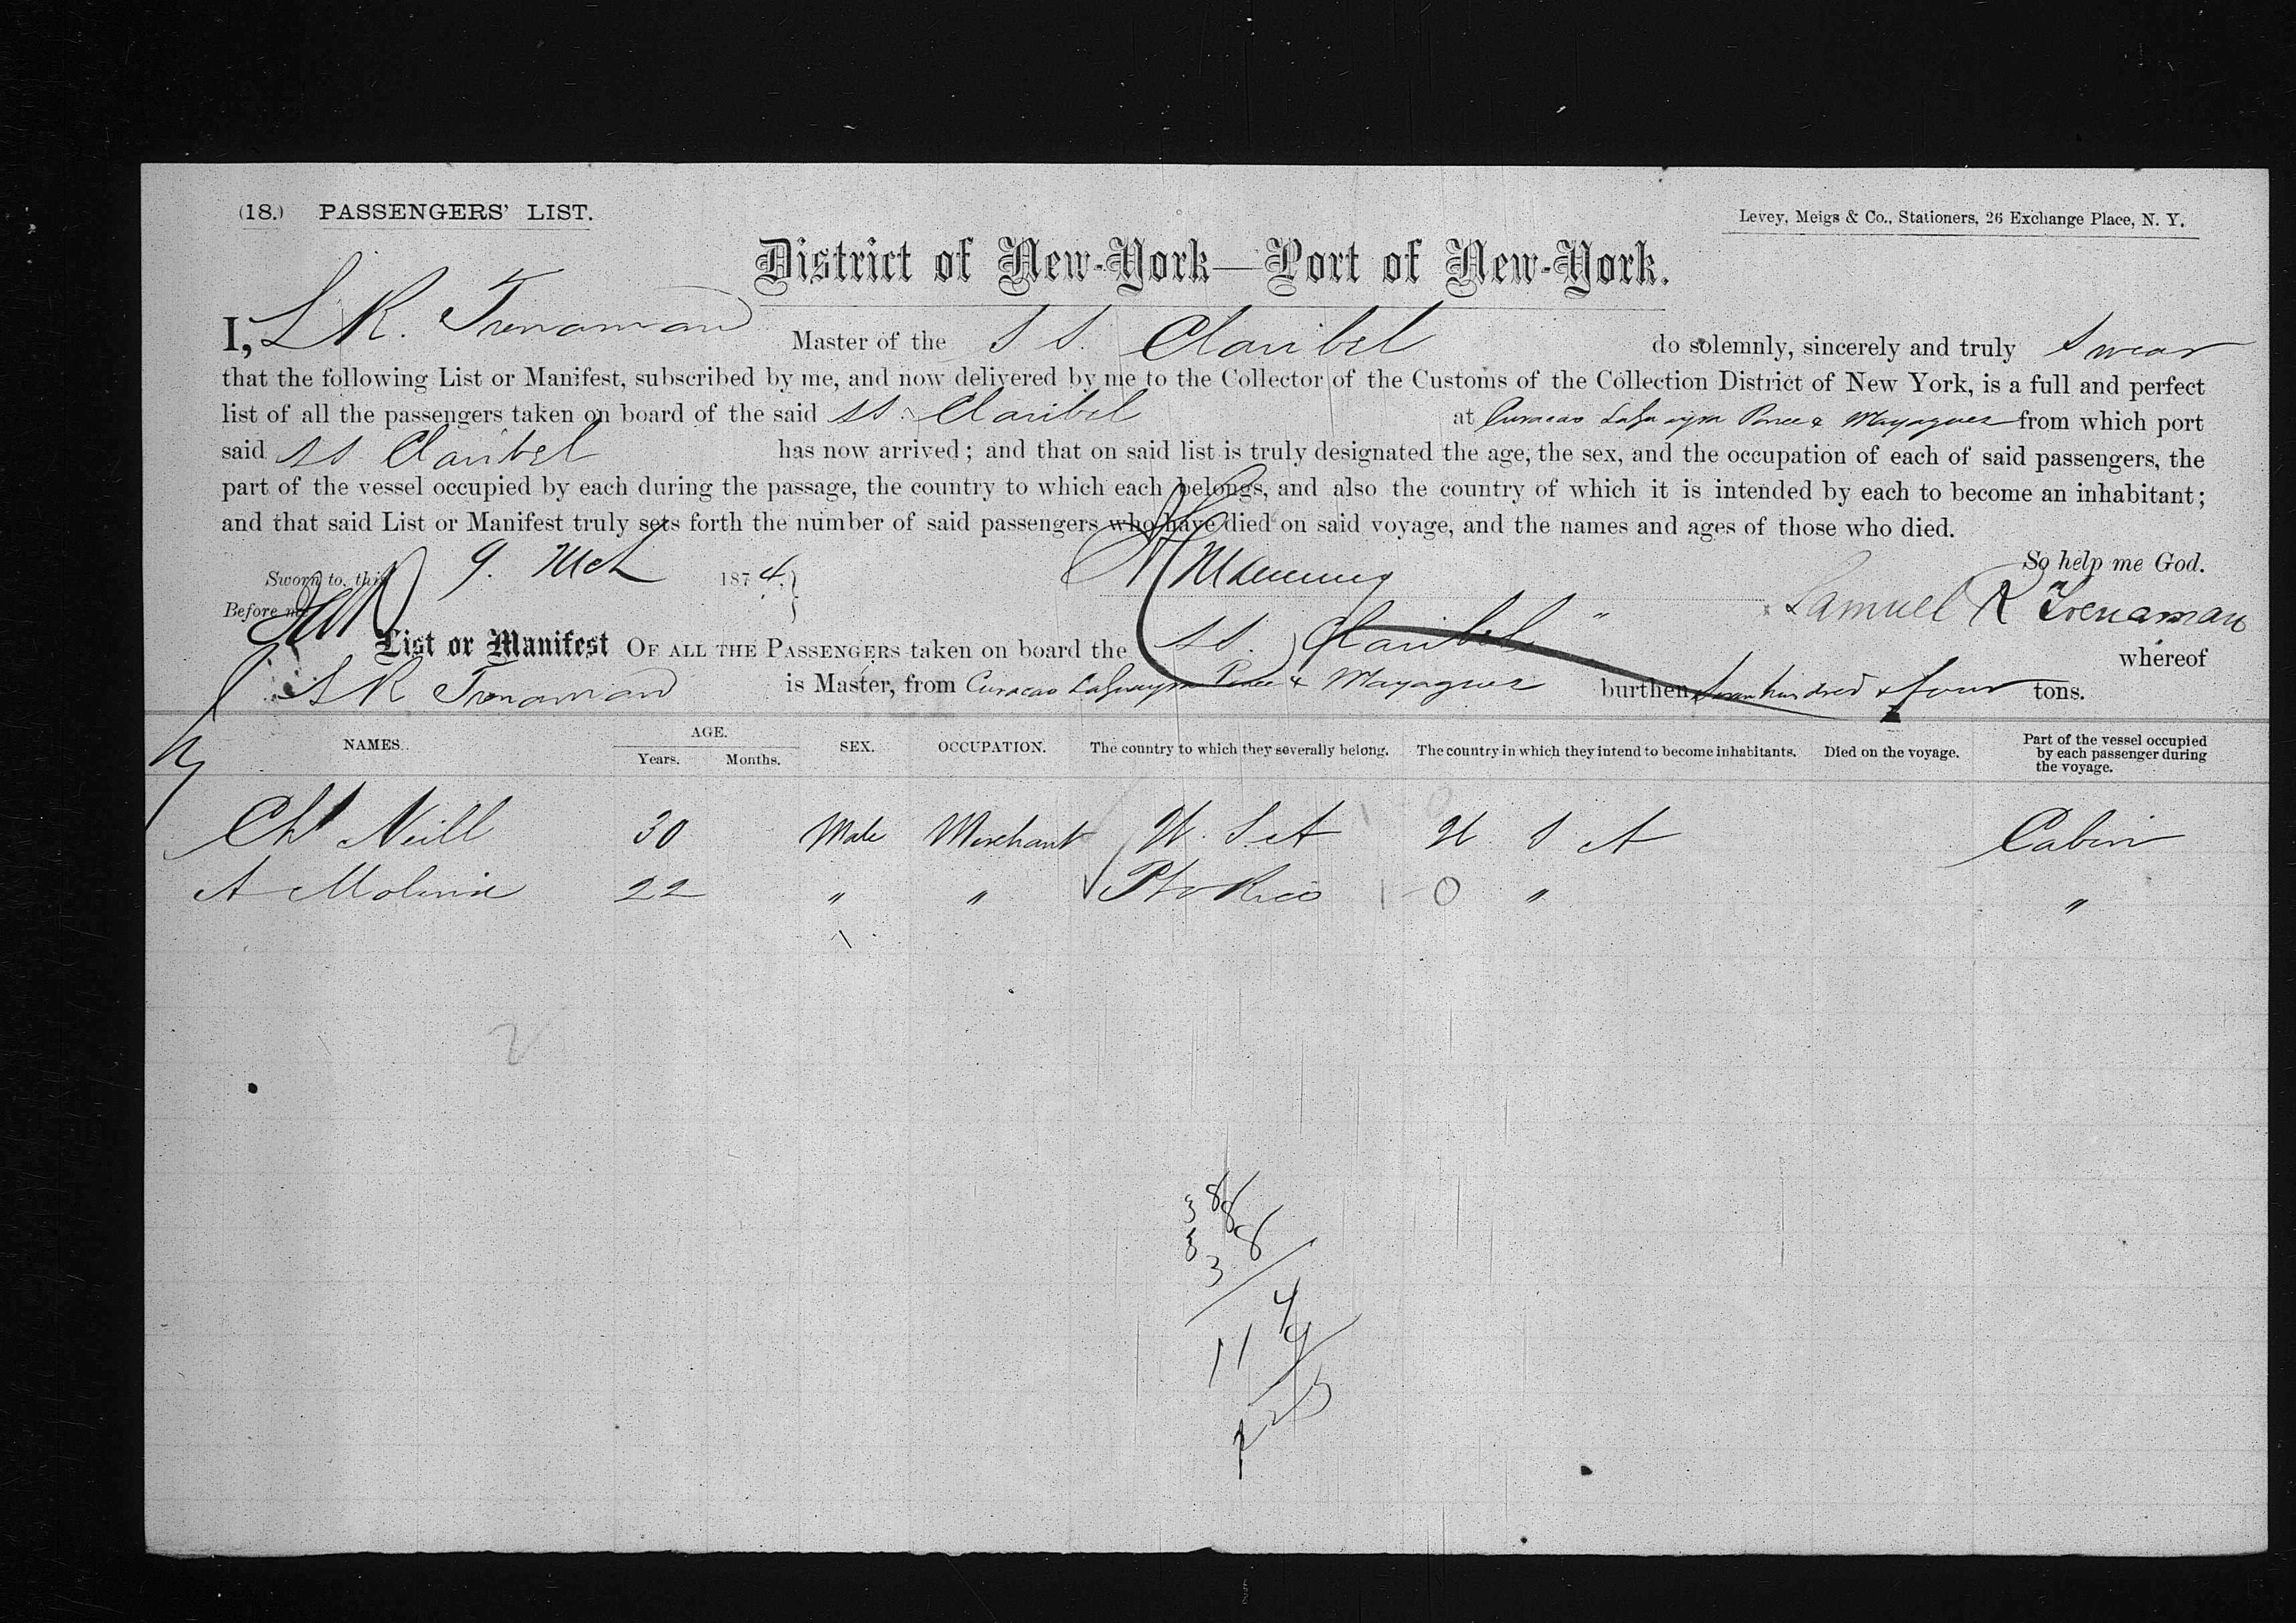 (18.) PASSENGERS' LIST.
Levey, Meigs & Co., Stationers, 26 Exchange Place, N. Y.
District of New-York—Port of New-York.
I, S R. Trenaman Master of the S S. Claribel do solemnly, sincerely and truly swear
that the following List or Manifest, subscribed by me, and now delivered by me to the Collector of the Customs of the Collection District of New York, is a full and perfect
list of all the passengers taken on board of the said SS. Claribel at Curacao LaGuayra Ponce & Mayaguez from which port
said SS Claribel has now arrived; and that on said list is truly designated the age, the sex, and the occupation of each of said passengers, the
part of the vessel occupied by each during the passage, the country to which each belongs, and also the country of which it is intended by each to become an inhabitant;
and that said List or Manifest truly sets forth the number of said passengers who have died on said voyage, and the names and ages of those who died.
So help me God.
Sworn to, this 9. Mch 1874.
Before me
Samuel R Trenaman
List or Manifest OF ALL THE PASSENGERS taken on board the SS. Claribel " whereof
S R Trenaman is Master, from Curacao LaGuayra Ponce & Mayaguez burthen seven hundred & four tons.
NAMES. AGE. Years. Months. SEX. OCCUPATION. The country to which they severally belong. The country in which they intend to become inhabitants. Died on the voyage. Part of the vessel occupied by each passenger during the voyage.
Chs Neill 30 Male Merchant U. S. A U S A Cabin
A Molina 22 " " Pto Rico 1 0 " "
2